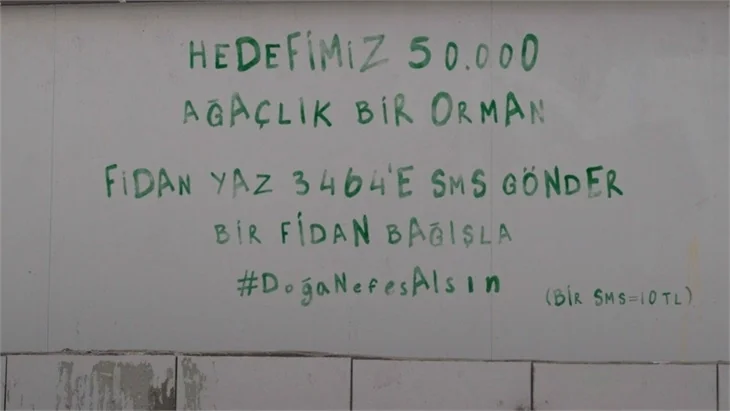 HEDEFİMİZ 50.000
AĞAÇLIK BİR ORMAN
FİDAN YAZ 3464'E SMS GÖNDER
BİR FİDAN BAĞIŞLA
#DoğaNefesAlsın
(BİR SMS=10TL)